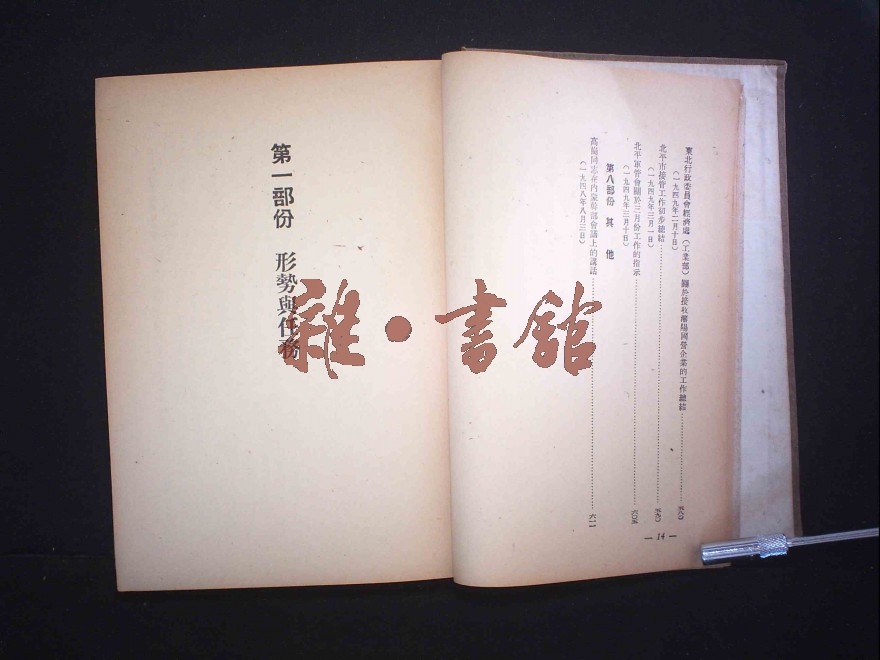 東北行政委員會經濟處（工業部）關於接收瀋陽國營企業的工作總結……五八〇
（一九四九年二月十日）
北平市接管工作初步總結……五九〇
（一九四九年三月一日）
北平軍管會關於三月份工作的指示……六〇五
（一九四九年三月十日）
第八部份 其他
高崗同志在內蒙幹部會議上的講話……六一一
（一九四八年八月三日）
— 14 —
第一部份 形勢與任務
雜·書館